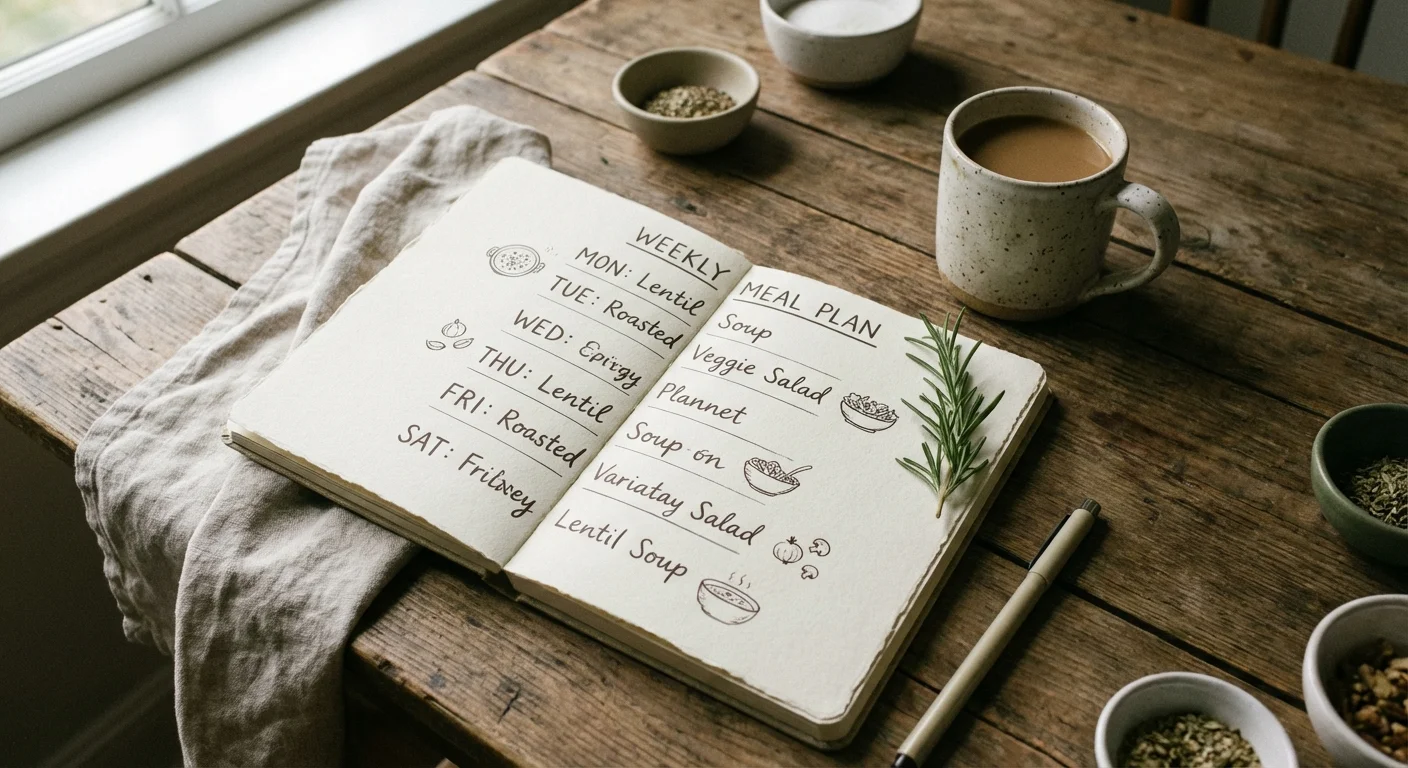 WEEKLY MEAL PLAN
MON: Lentil Soup
TUE: Roasted Veggie Salad
WED: Plannet
THU: Lentil Soup
FRI: Roasted Variatay Salad
SAT: Lentil Soup